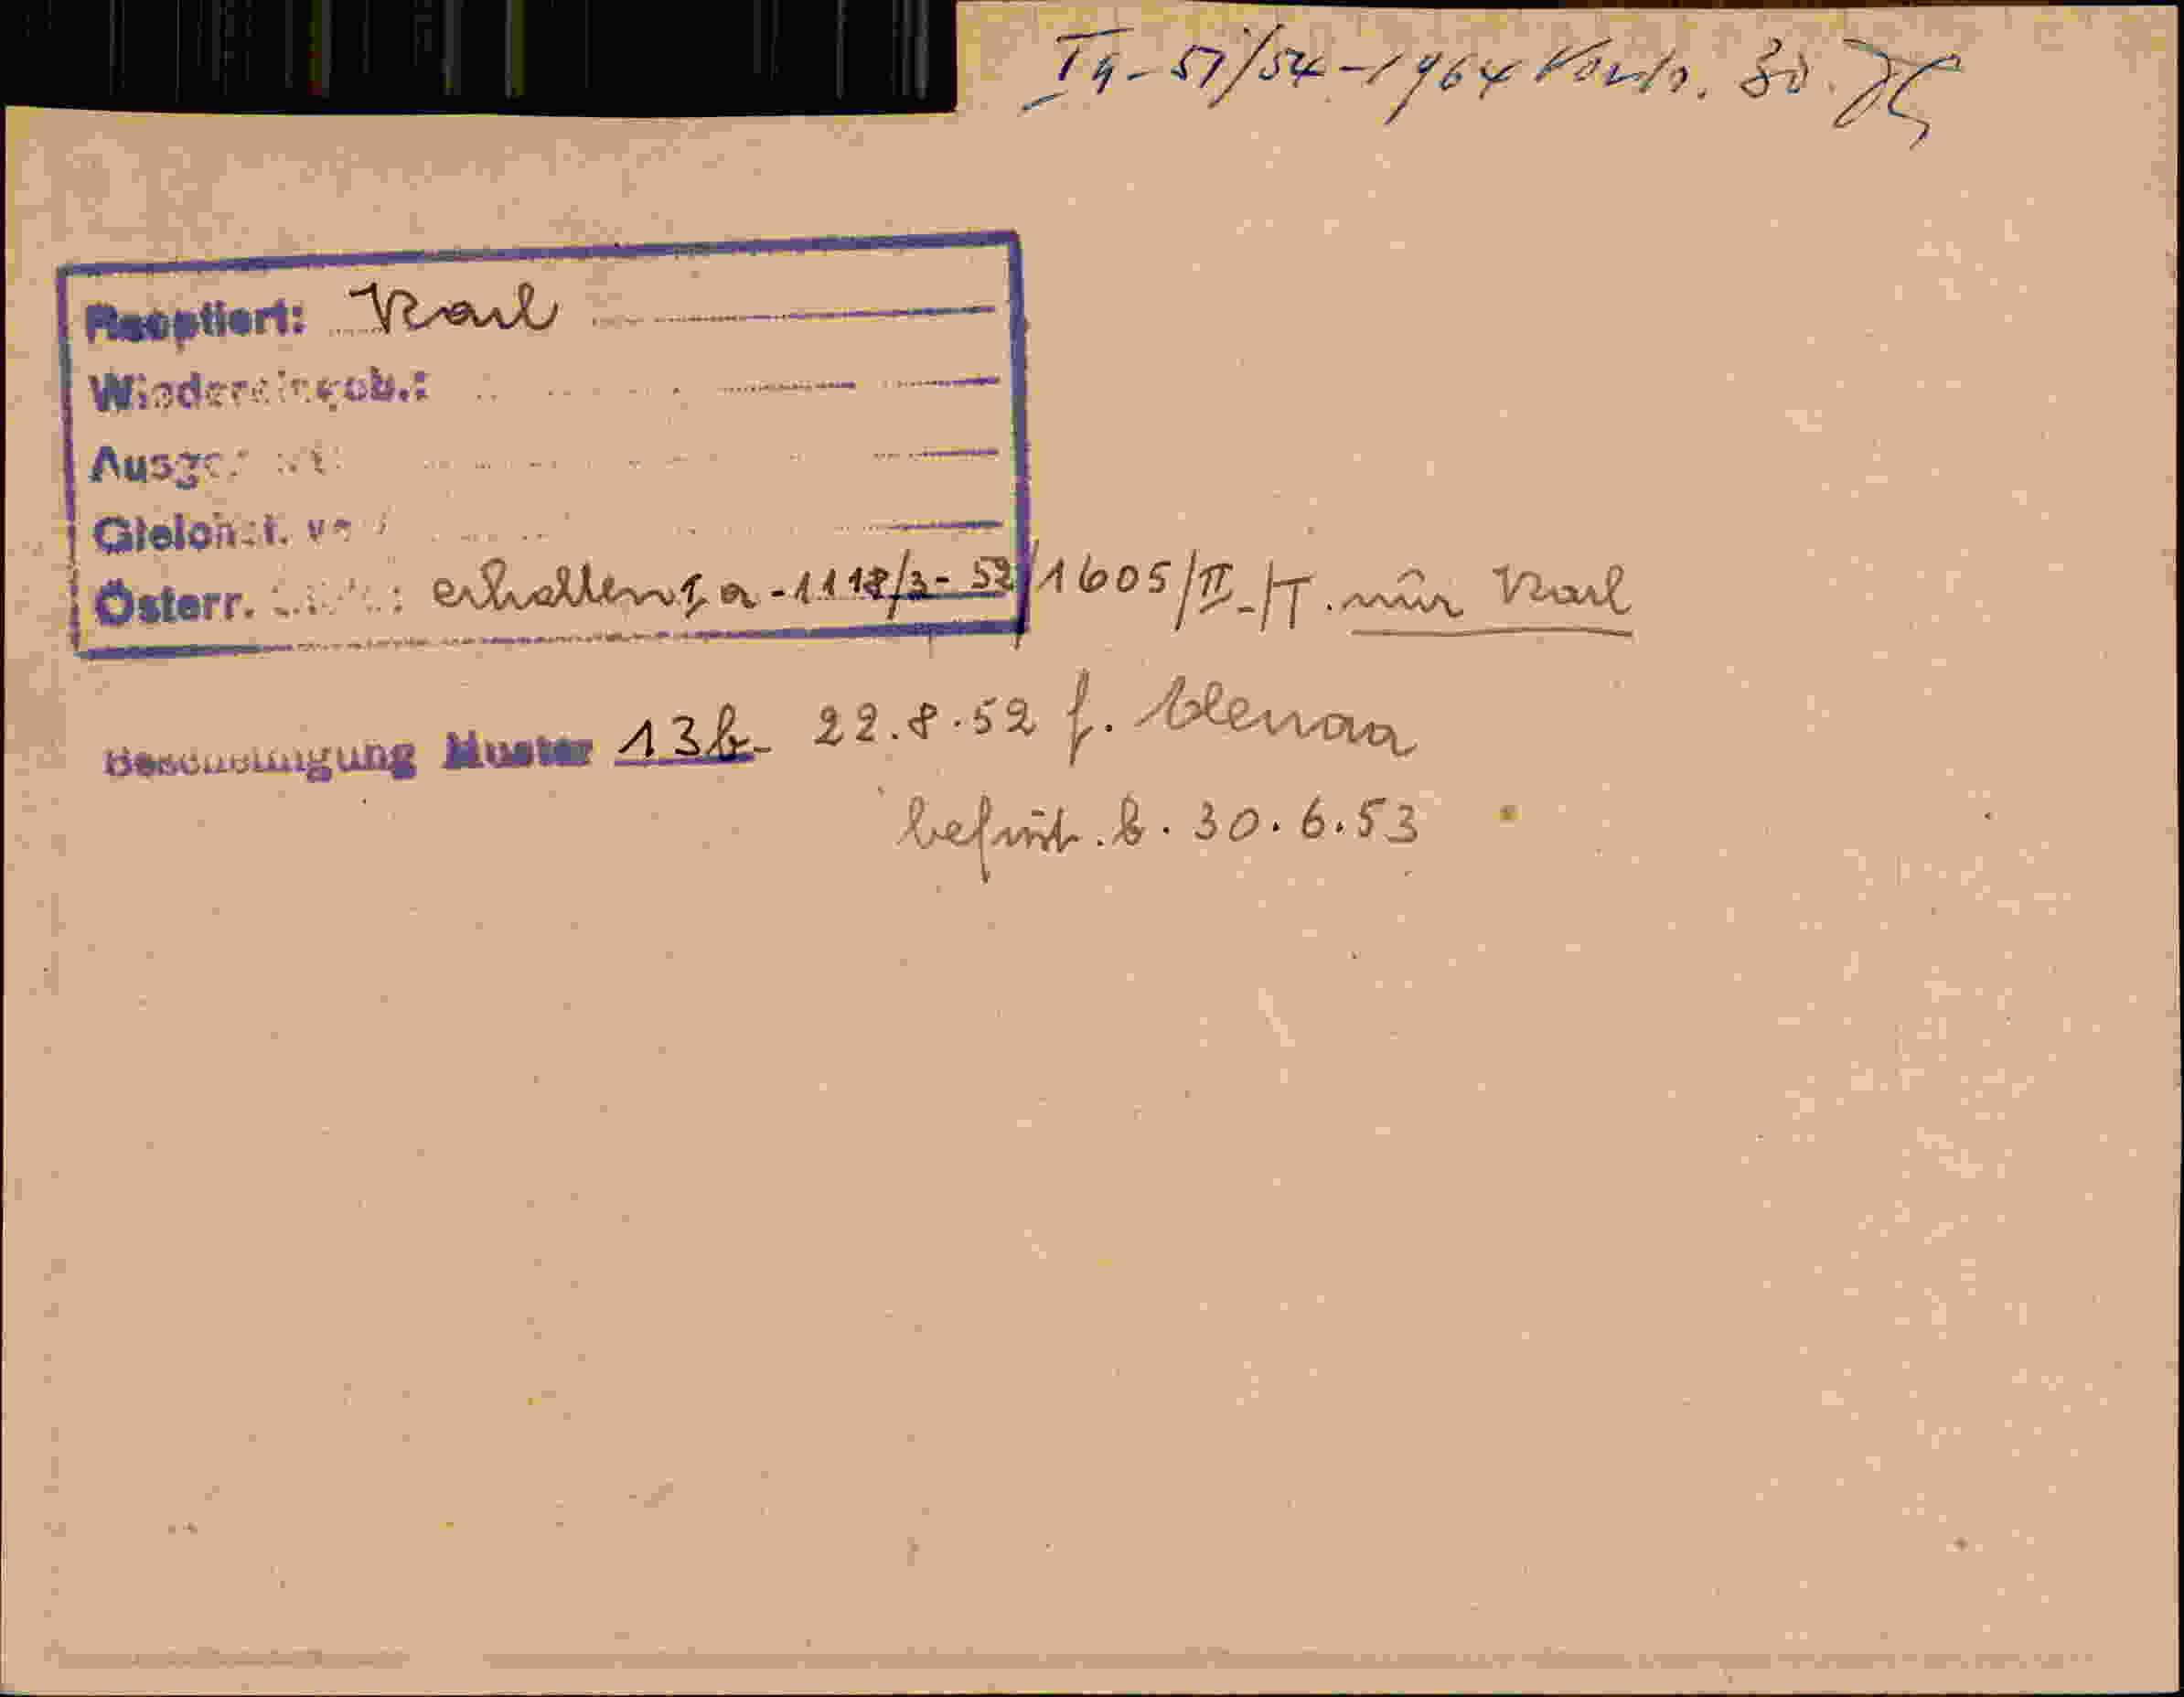 Ia-51/54-1964 Vorh. 30.
Reoptiert: Karl
Wiedereingeb.:
Ausger
Gleichst. v
Österr. erhalten Ia-1118/3-52/1605/II-/T. nur Karl
Bescheinigung Muster 13b- 22.8.52 f.
befrist. b. 30.6.53